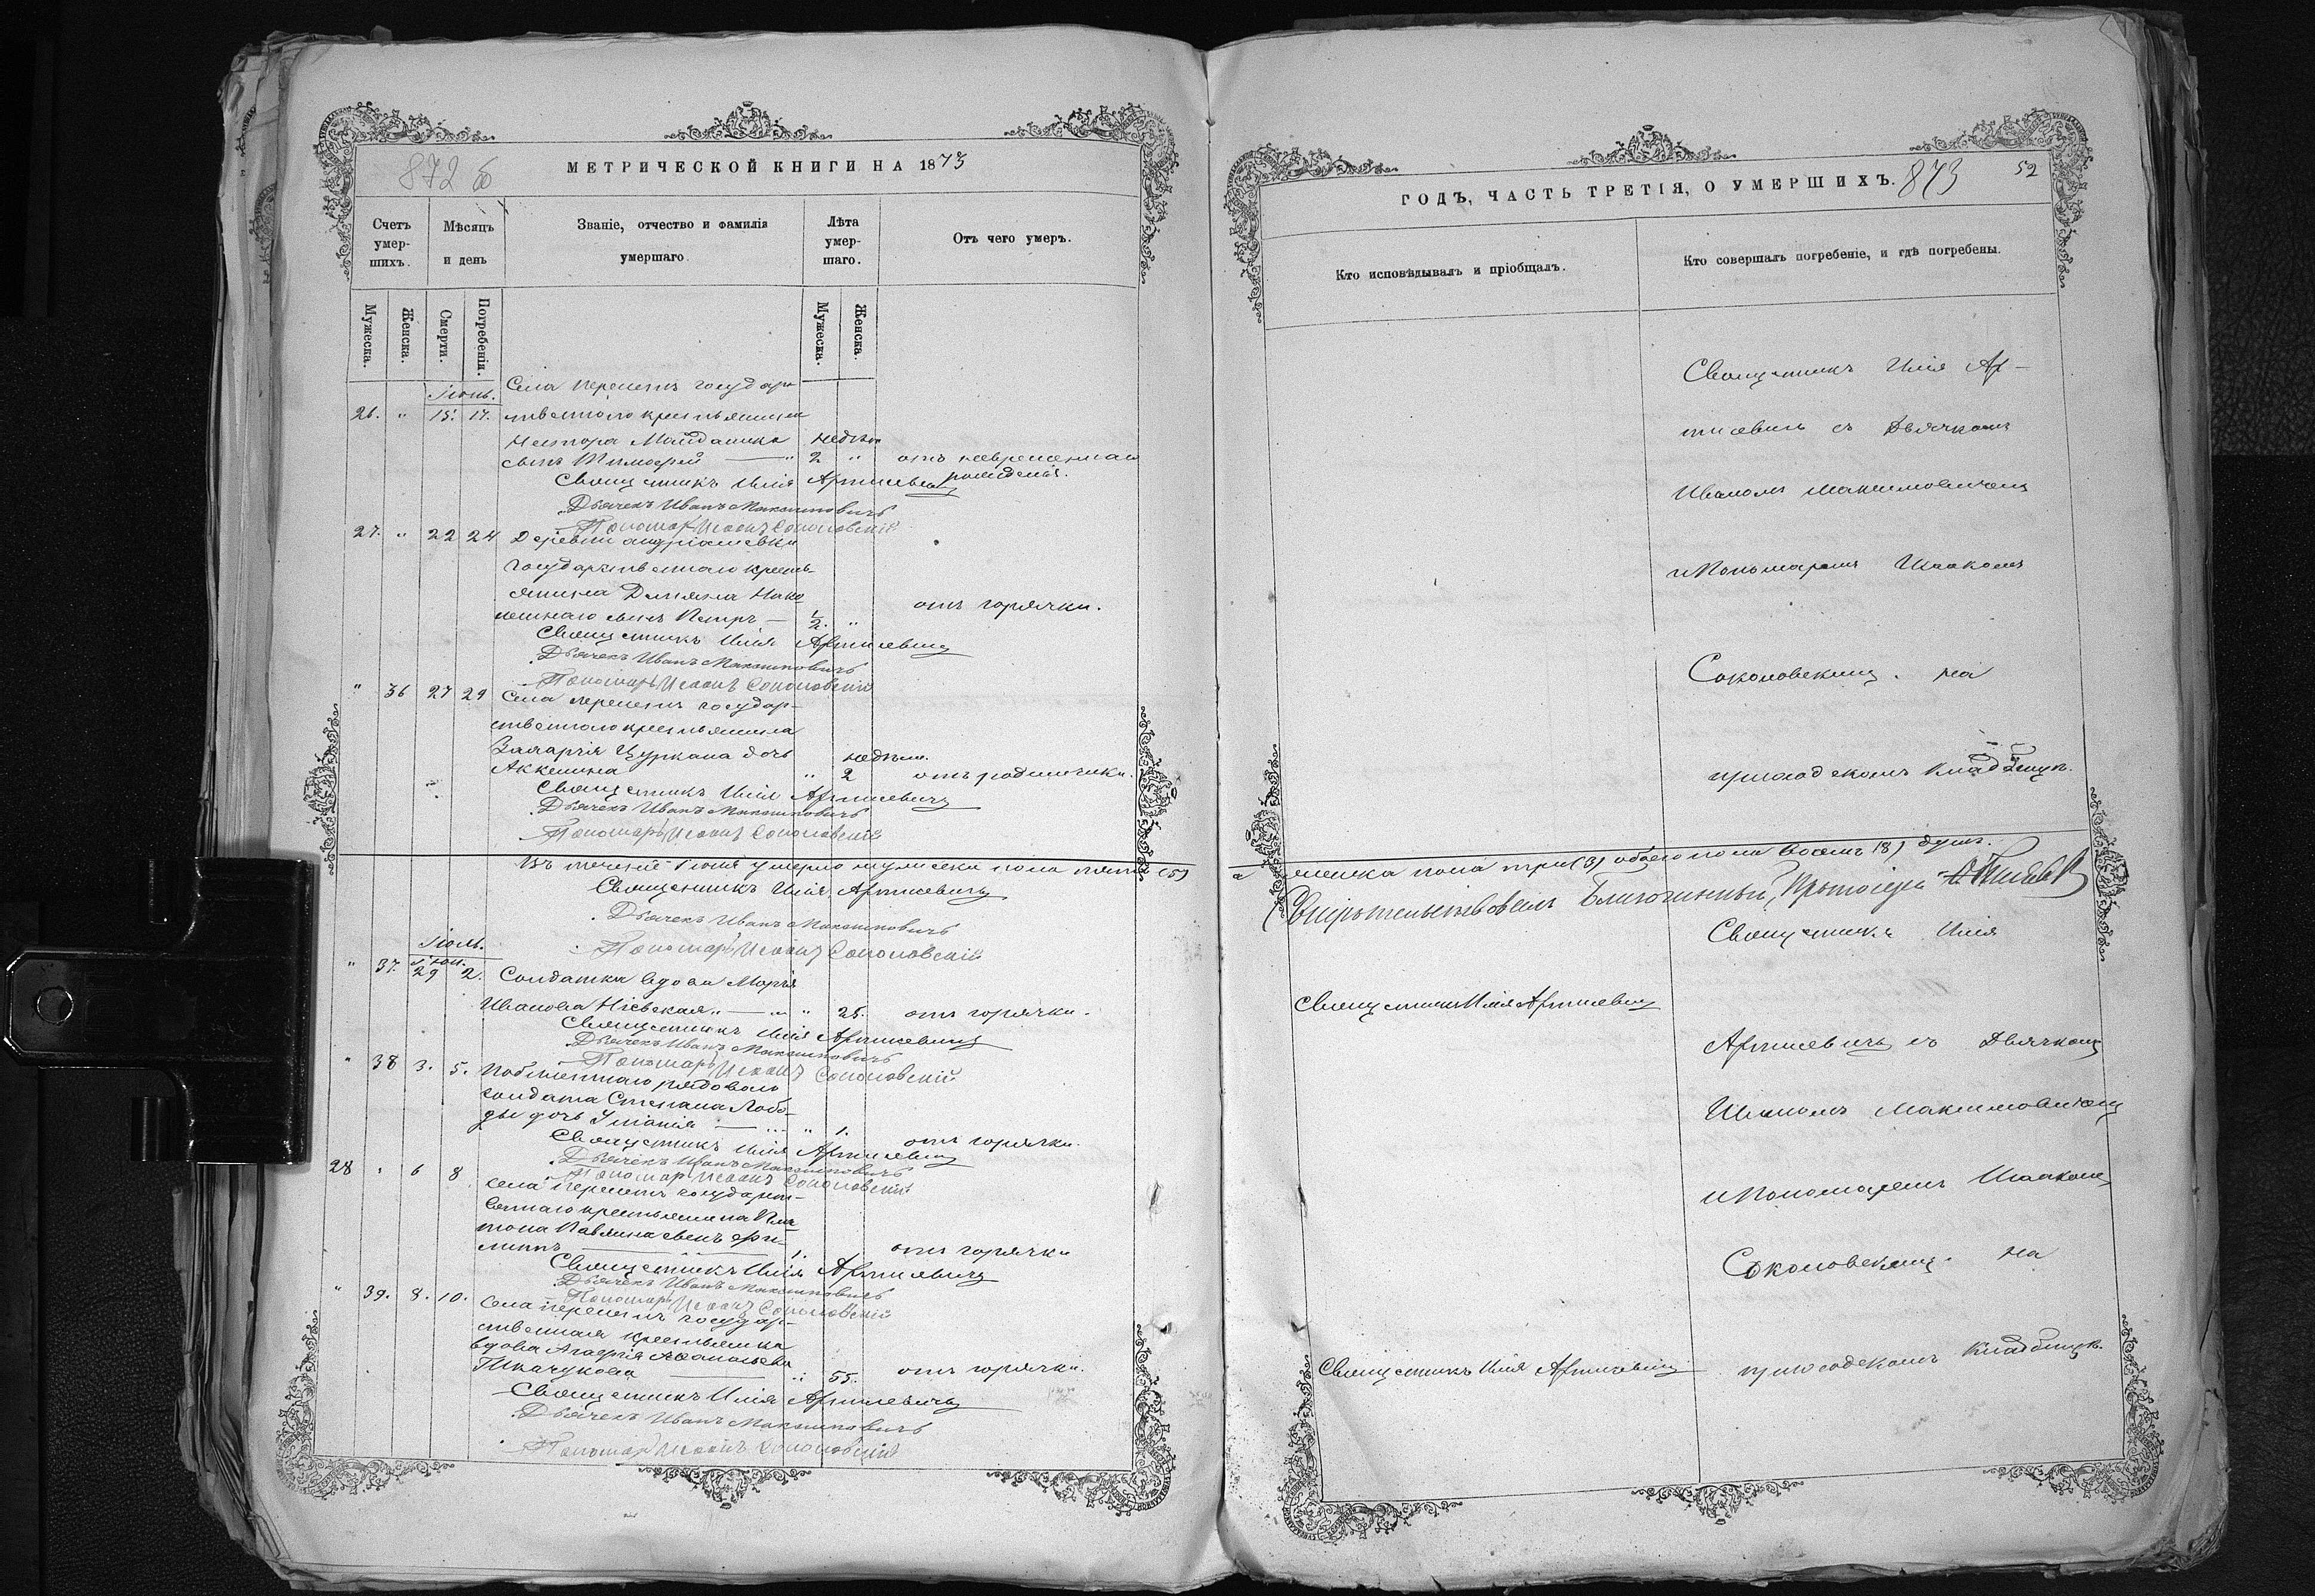 872 об
МЕТРИЧЕСКОЙ КНИГИ НА 1873
Счетъ умер-шихъ.
Мѣсяцъ и день
Званіе, отчество и фамилія умершаго.
Лѣта умер-шаго.
Отъ чего умеръ.
Мужеска.
Женска.
Смерти.
Погребенія.
Мужеска.
Женска.
Іюнь.
Села Перелетъ государ-
26. " 15. 17. ственнаго крестьянина
Нестора Майданика недѣли
сынъ Тимофей — 2 " отъ невременнаго
рожденія.
Священникъ Илія
Дьячекъ Иванъ Максимовичъ
Пономарь Исаакъ Соколовскій
27. " 22 24 Деревни Андріяшевки
государственнаго кресть-
янина Демьяна
сынъ Петръ — 1/2. " отъ горячки.
Священникъ Илія
Дьячекъ Иванъ Максимовичъ
Пономарь Исаакъ Соколовскій
" 36 27 29 Села Перелетъ государ-
ственнаго крестьянина
Захарія Цуркана дочь недѣли.
Аккилина " 2 отъ родимчика.
Священникъ Илія
Дьячекъ Иванъ Максимовичъ
Пономарь Исаакъ Соколовскій
Въ теченіе Іюня умерло мужеска пола пять (5)
Священникъ Илія
Дьячекъ Иванъ Максимовичъ
Пономарь Исаакъ Соколовскій
Іюль.
Іюн.
" 37. 29 2. Солдатка вдова Марія
Иванова " 25. отъ горячки.
Священникъ Илія
Дьячекъ Иванъ Максимовичъ
Пономарь Исаакъ Соколовскій
" 38 3. 5. рядоваго
солдата Степана Лобо-
ды дочь — " 1. отъ горячки.
Священникъ Илія
Дьячекъ Иванъ Максимовичъ
Пономарь Исаакъ Соколовскій
28 " 6 8 Села Перелетъ государст-
веннаго крестьянина Пла-
тона сынъ Фи-
липъ — 1. отъ горячки
Священникъ Илія
Дьячекъ Иванъ Максимовичъ
Пономарь Исаакъ Соколовскій
" 39. 8. 10. Села Перелетъ государ-
ственная крестьянка
вдова Агафія
Ткачукова — " 55. отъ горячки.
Священникъ Илія
Дьячекъ Иванъ Максимовичъ
Пономарь Исаакъ Соколовскій
ГОДЪ, ЧАСТЬ ТРЕТІЯ, О УМЕРШИХЪ. 873 52
Кто исповѣдывалъ и пріобщалъ.
Кто совершалъ погребеніе, и гдѣ погребены.
Священникъ Илія
съ Дьячкомъ
Иваномъ Максимовичемъ
и Пономаремъ Исаакомъ
Соколовскимъ. на
приходскомъ кладбищѣ.
а женска пола три (3) обоего пола восемь (8) душъ.
Свидѣтельствовалъ Благочинный, Протоіерей
Священникъ Илія
Священникъ Илія
съ Дьячкомъ
Иваномъ Максимовичемъ
и Пономаремъ Исаакомъ
Соколовскимъ. на
Священникъ Илія
приходскомъ кладбищѣ.